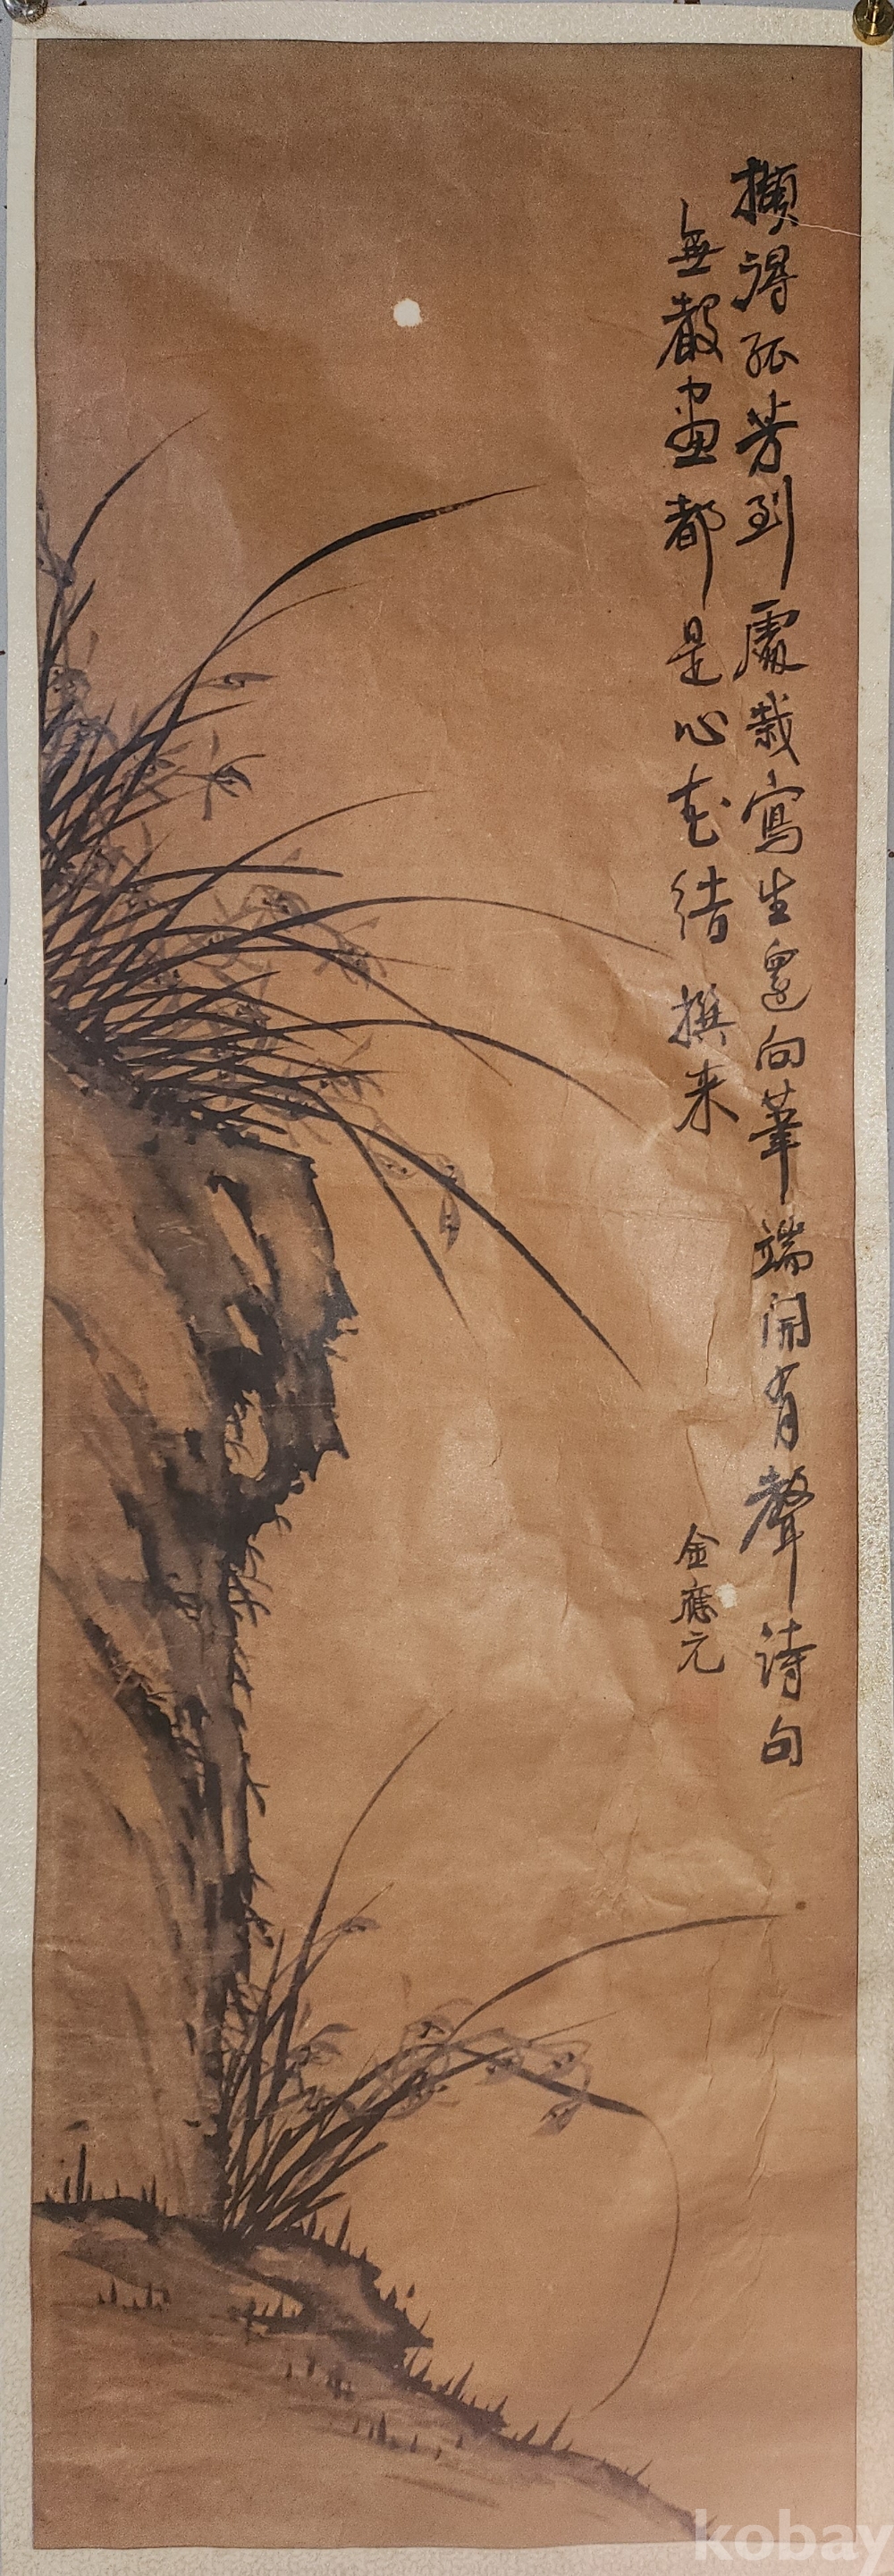 擷得孤芳到處栽寫生還向筆端開有聲詩句
無聲畫都是心花結撰来
金應元
kobay